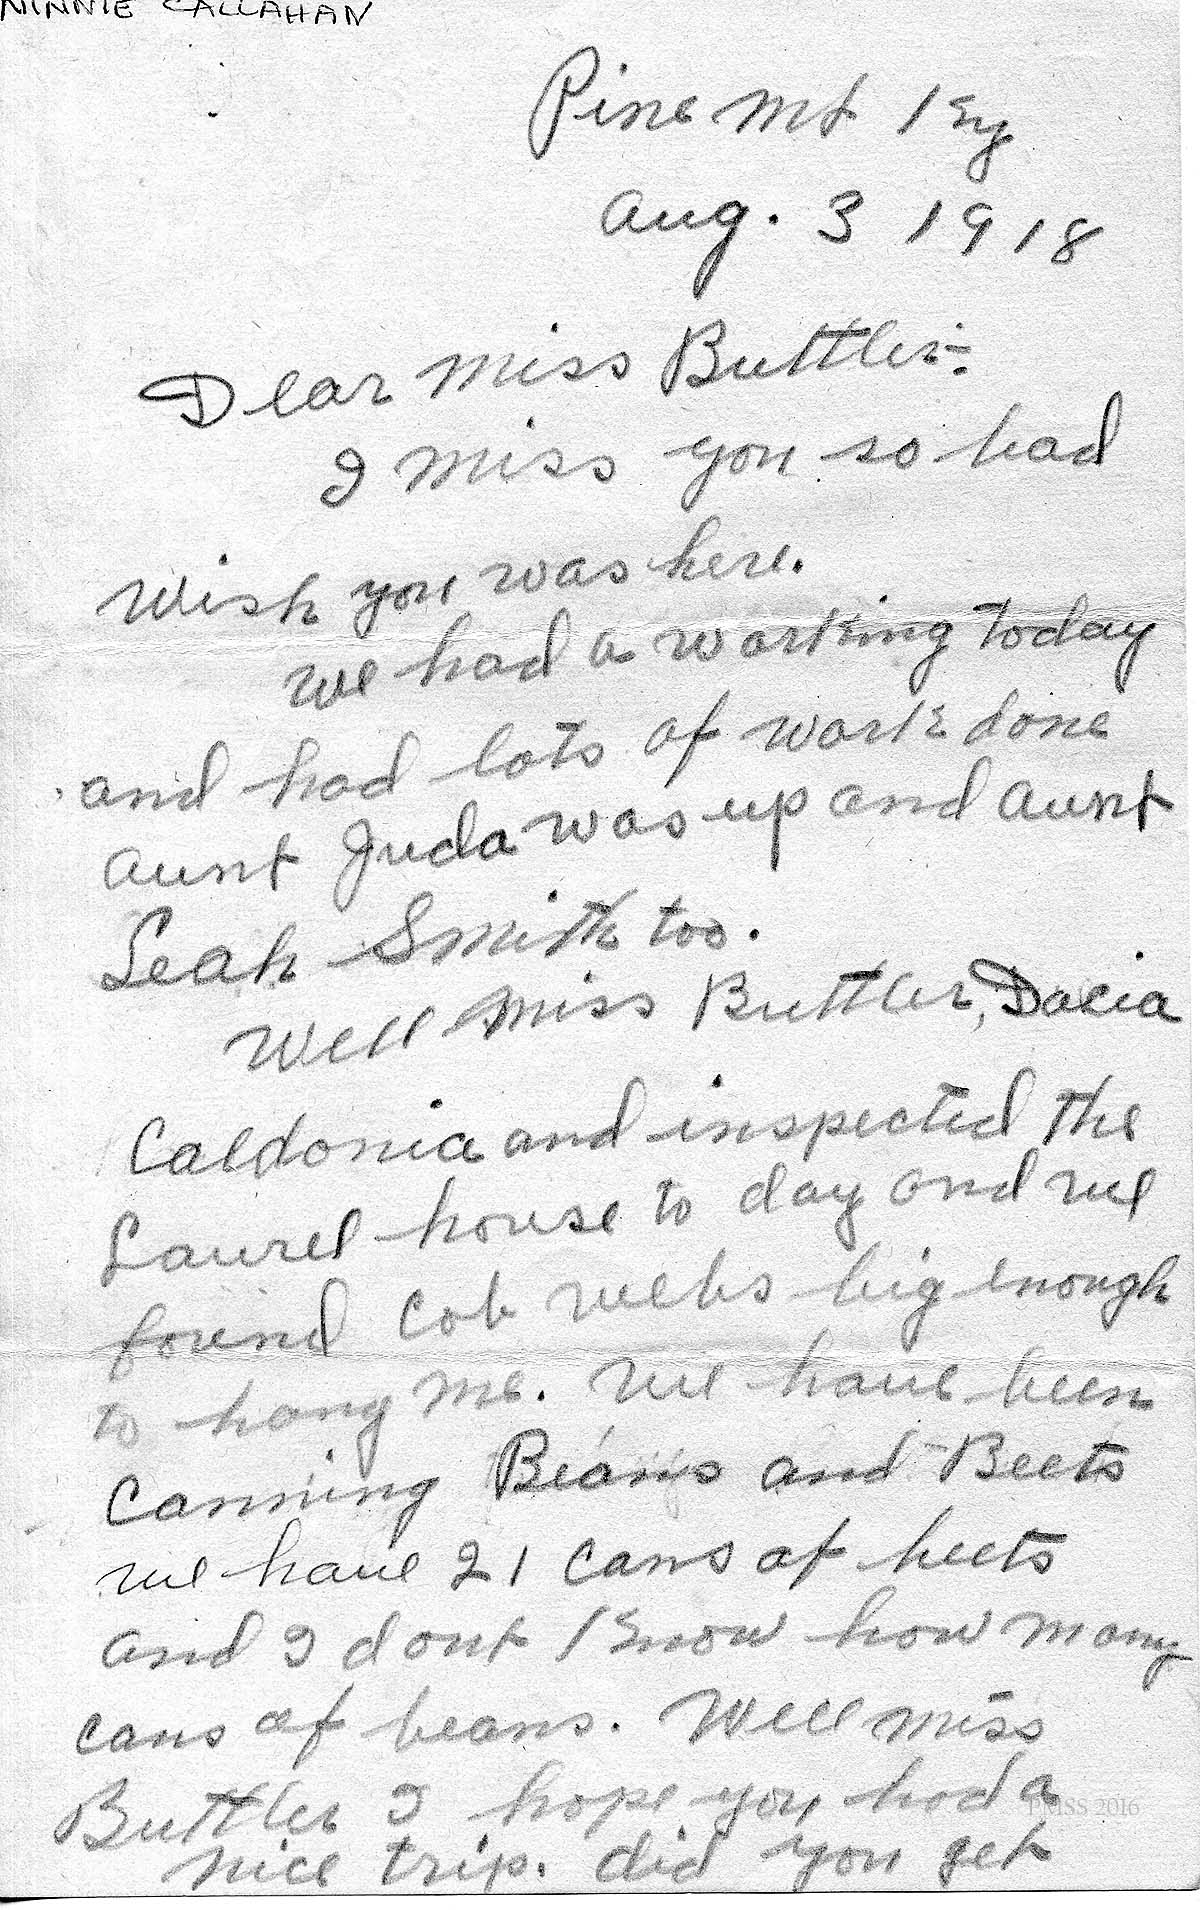 MINNIE CALLAHAN
Pine Mt Ky
Aug. 3 1918
Dear Miss Buttler:-
I miss you so bad
Wish you was here.
We had a working today
and had lots of work done
aunt Juda was up and aunt
Leah Smith too.
Well Miss Buttler, Dacia
Caldonia and inspected the
Laurel house to day and we
found cob webs big enough
to hang me. We have been
Canning Beans and Beets
we have 21 cans of beets
and I dont Know how many
cans of beans. Well miss
Buttler I hope you had a
nice trip. did you get
PMSS 2016